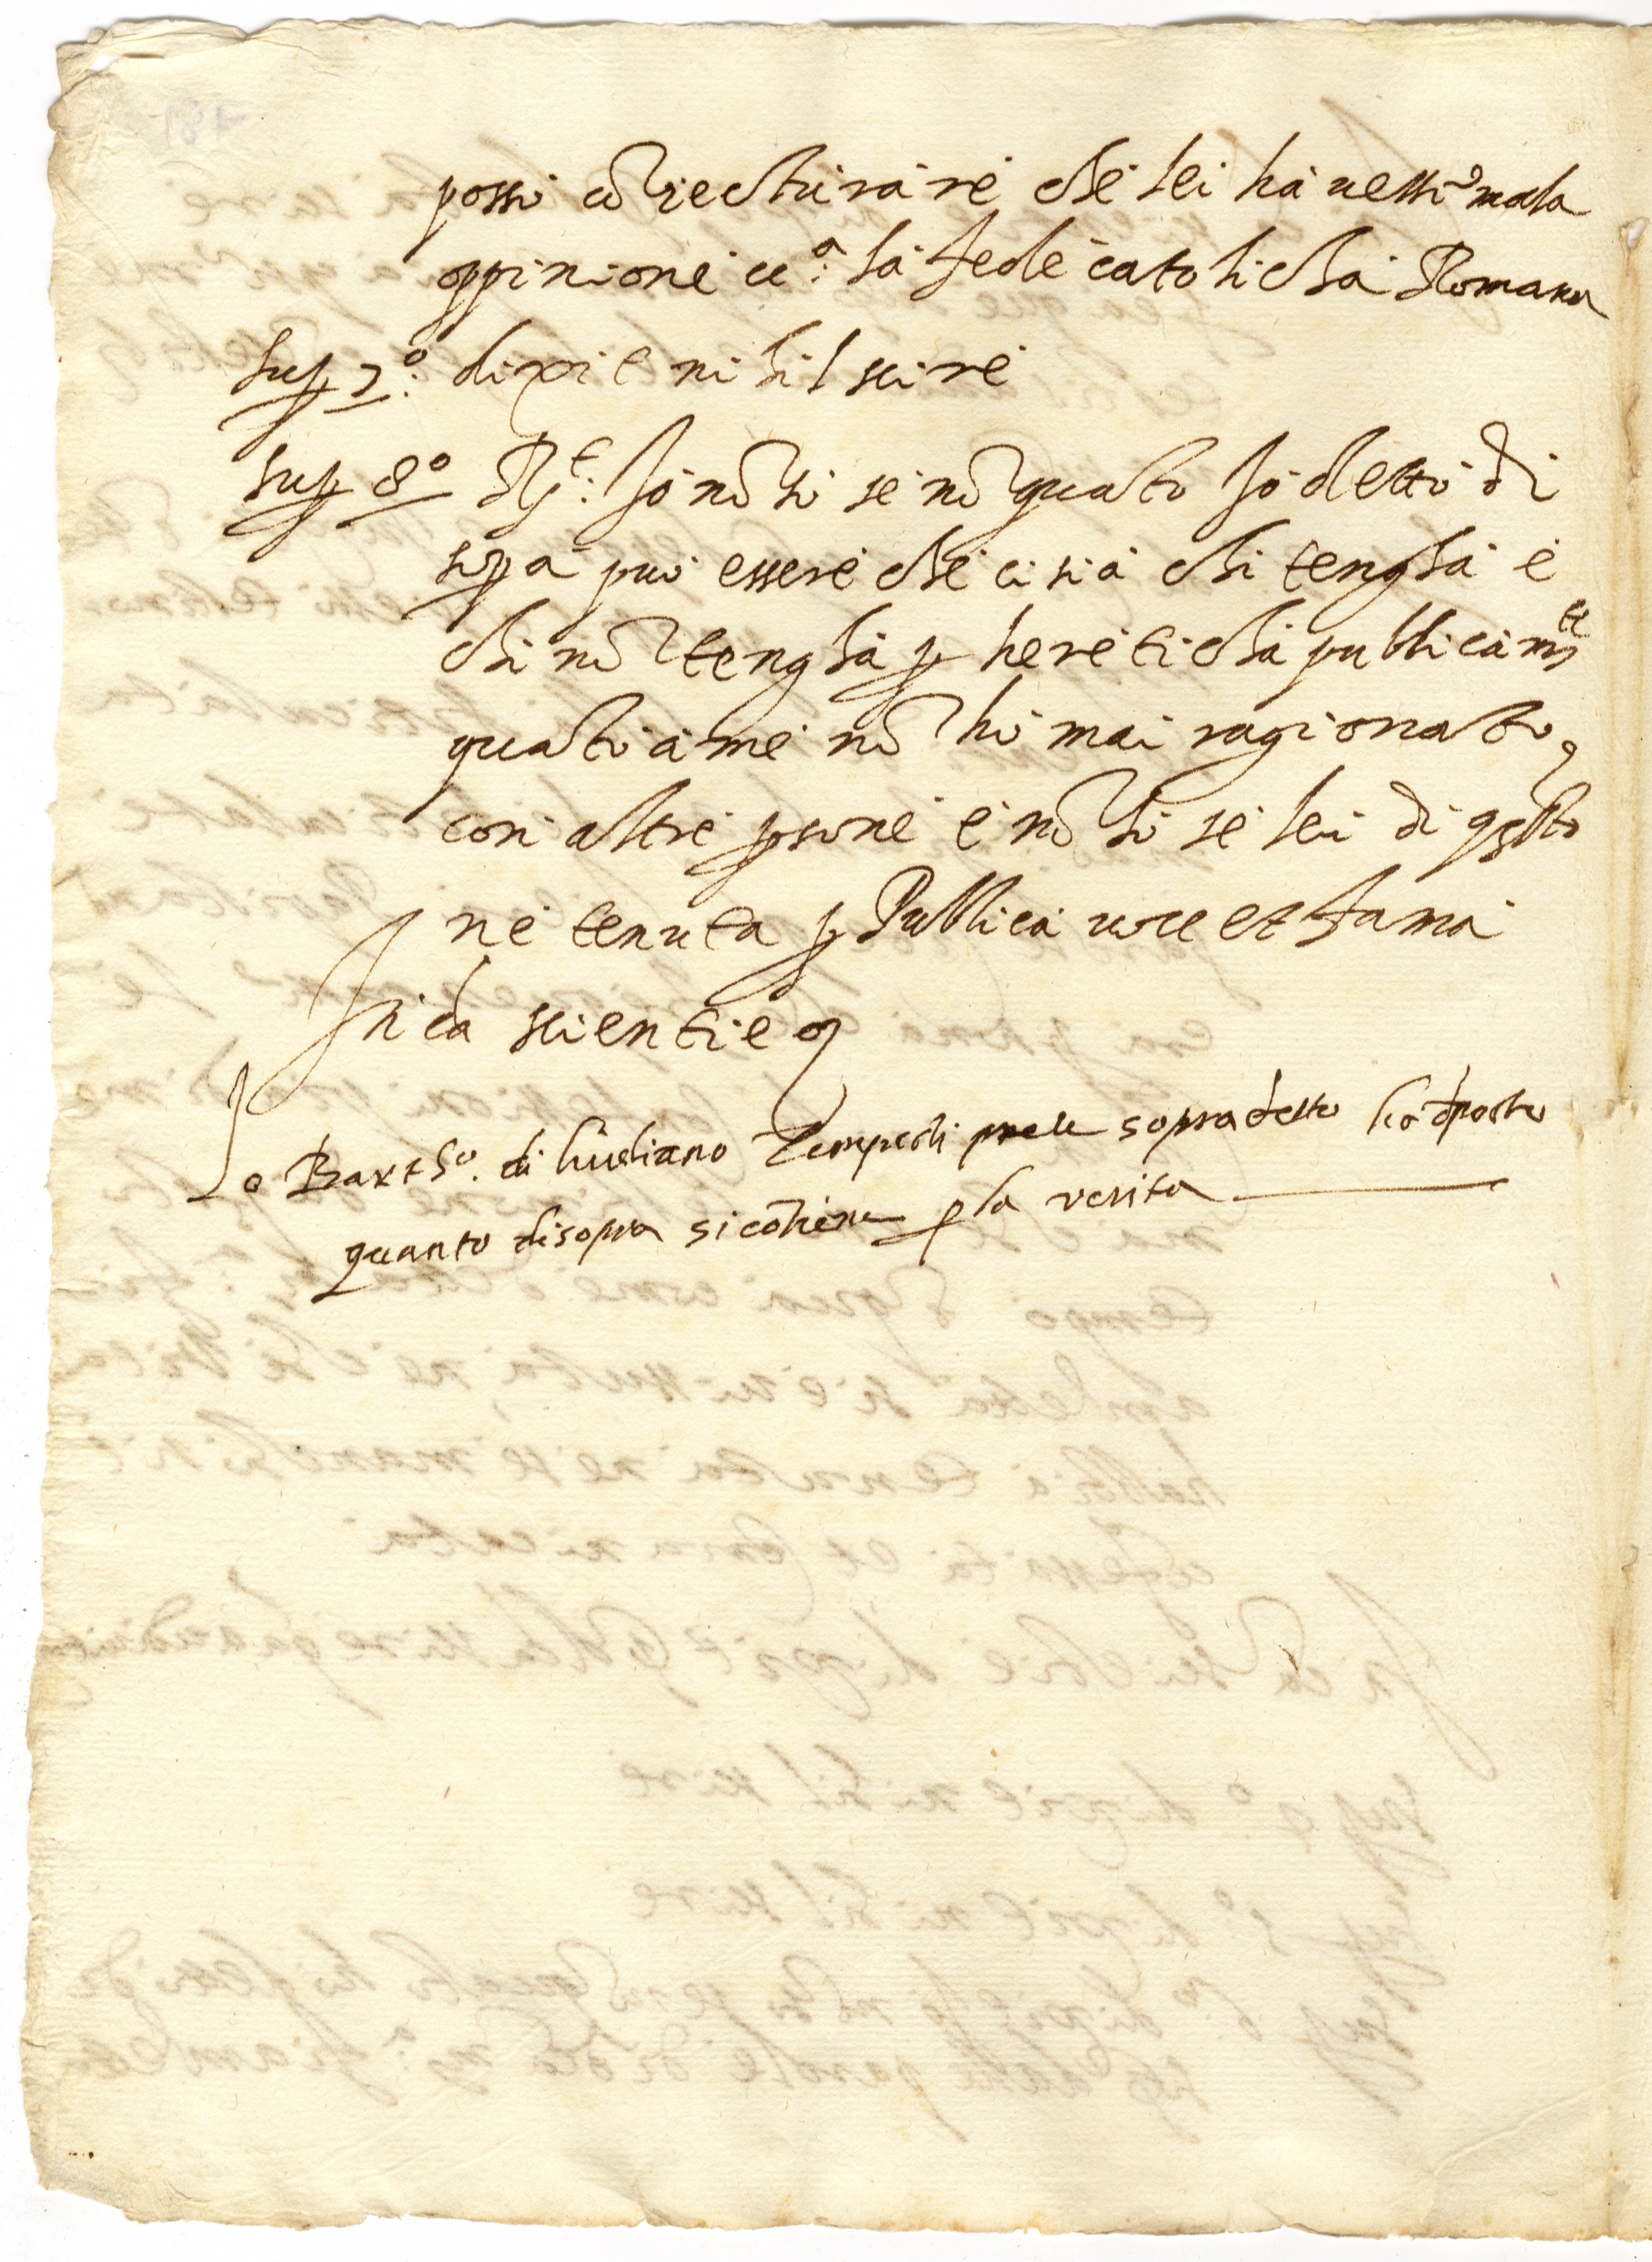 possi cõiecturare che lei havessi mala
oppinione cc.ª la fede catolicha Romana
Sup 7.º dixit nihil scire
Sup 8º R.t Io nõ so se nõ quãto ho detto di
sopa puo essere che ci sia chi tengha e
chi nõ tengha p heretichà publicam.te
quãto a me nõ ho mai ragionato
con altre psone e nõ so se lei di qsto
ne tenuta p Publica voce et fama
In cã scientie
Io Bartº. di Giuliano prete sopradetto ho dposto
quanto disopra si cõtiene p la verita